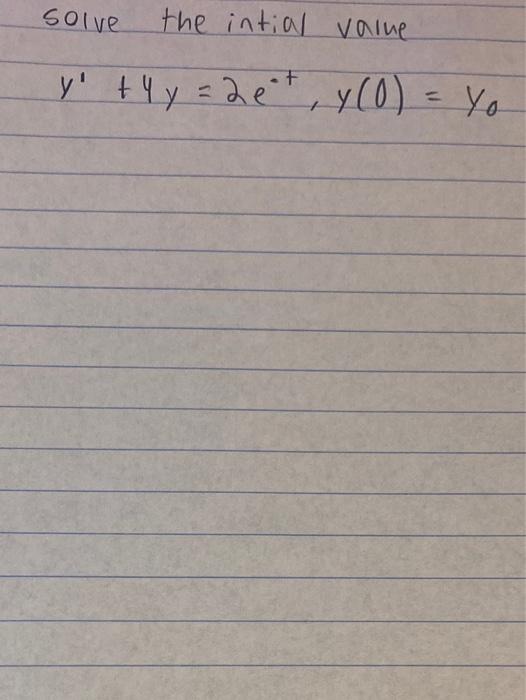 solve the intial value
y' + 4y = 2e^-t, y(0) = y₀